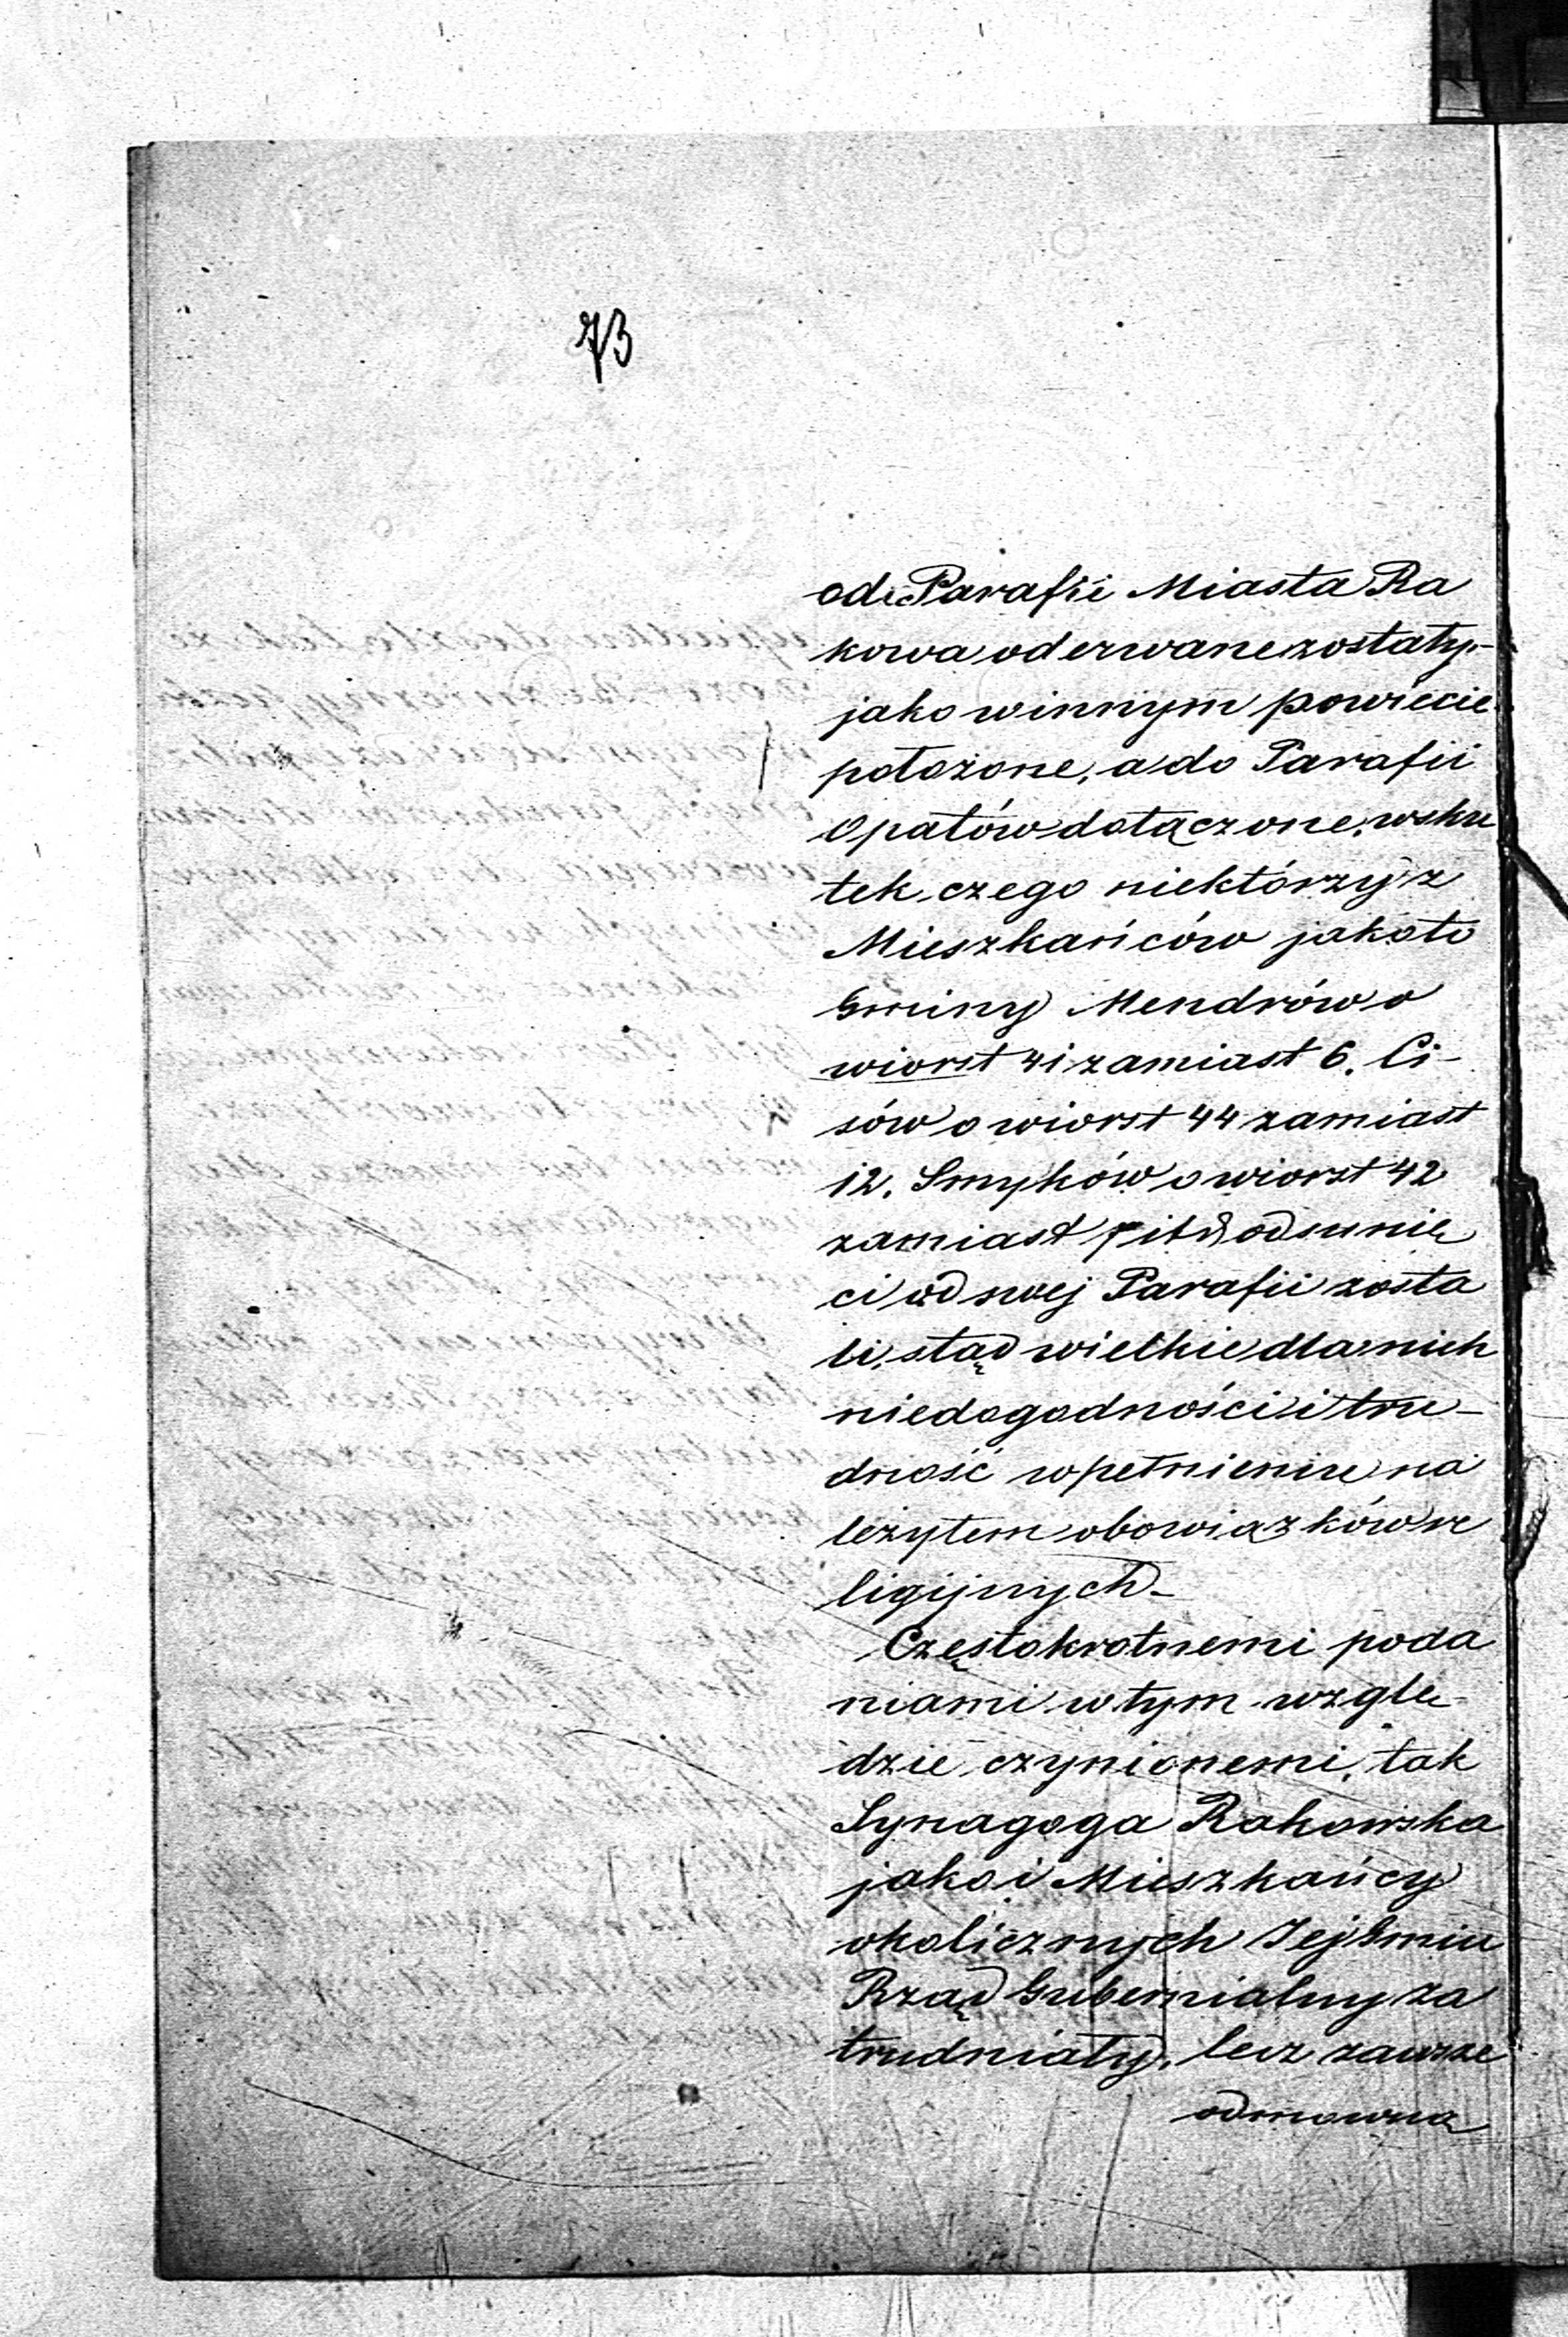 73
od Parafii Miasta Ra
kowa oderwane zostały
jako w innym powiecie
położone, a do Parafii
Opatów dołączone, wsku
tek czego niektórzy z
Mieszkańców jakoto
Gminy Mendrów o
wiorst 41 zamiast 6. Ci-
sów o wiorst 44 zamiast
12. Smyków o wiorst 42
zamiast odsunię
ci od swej Parafii zosta
li, stąd wielkie dla nich
niedogodności i tru-
dność w pełnieniu na
leżytem obowiązków re
ligijnych-
Częstokrotnemi poda
niami w tym wzglę
dzie czynionemi, tak
Synagoga Rakowska
jako i Mieszkańcy
okolicznych Jej Gmin
Rząd Gubernialny za
trudniały, lecz zawsze
odmowną